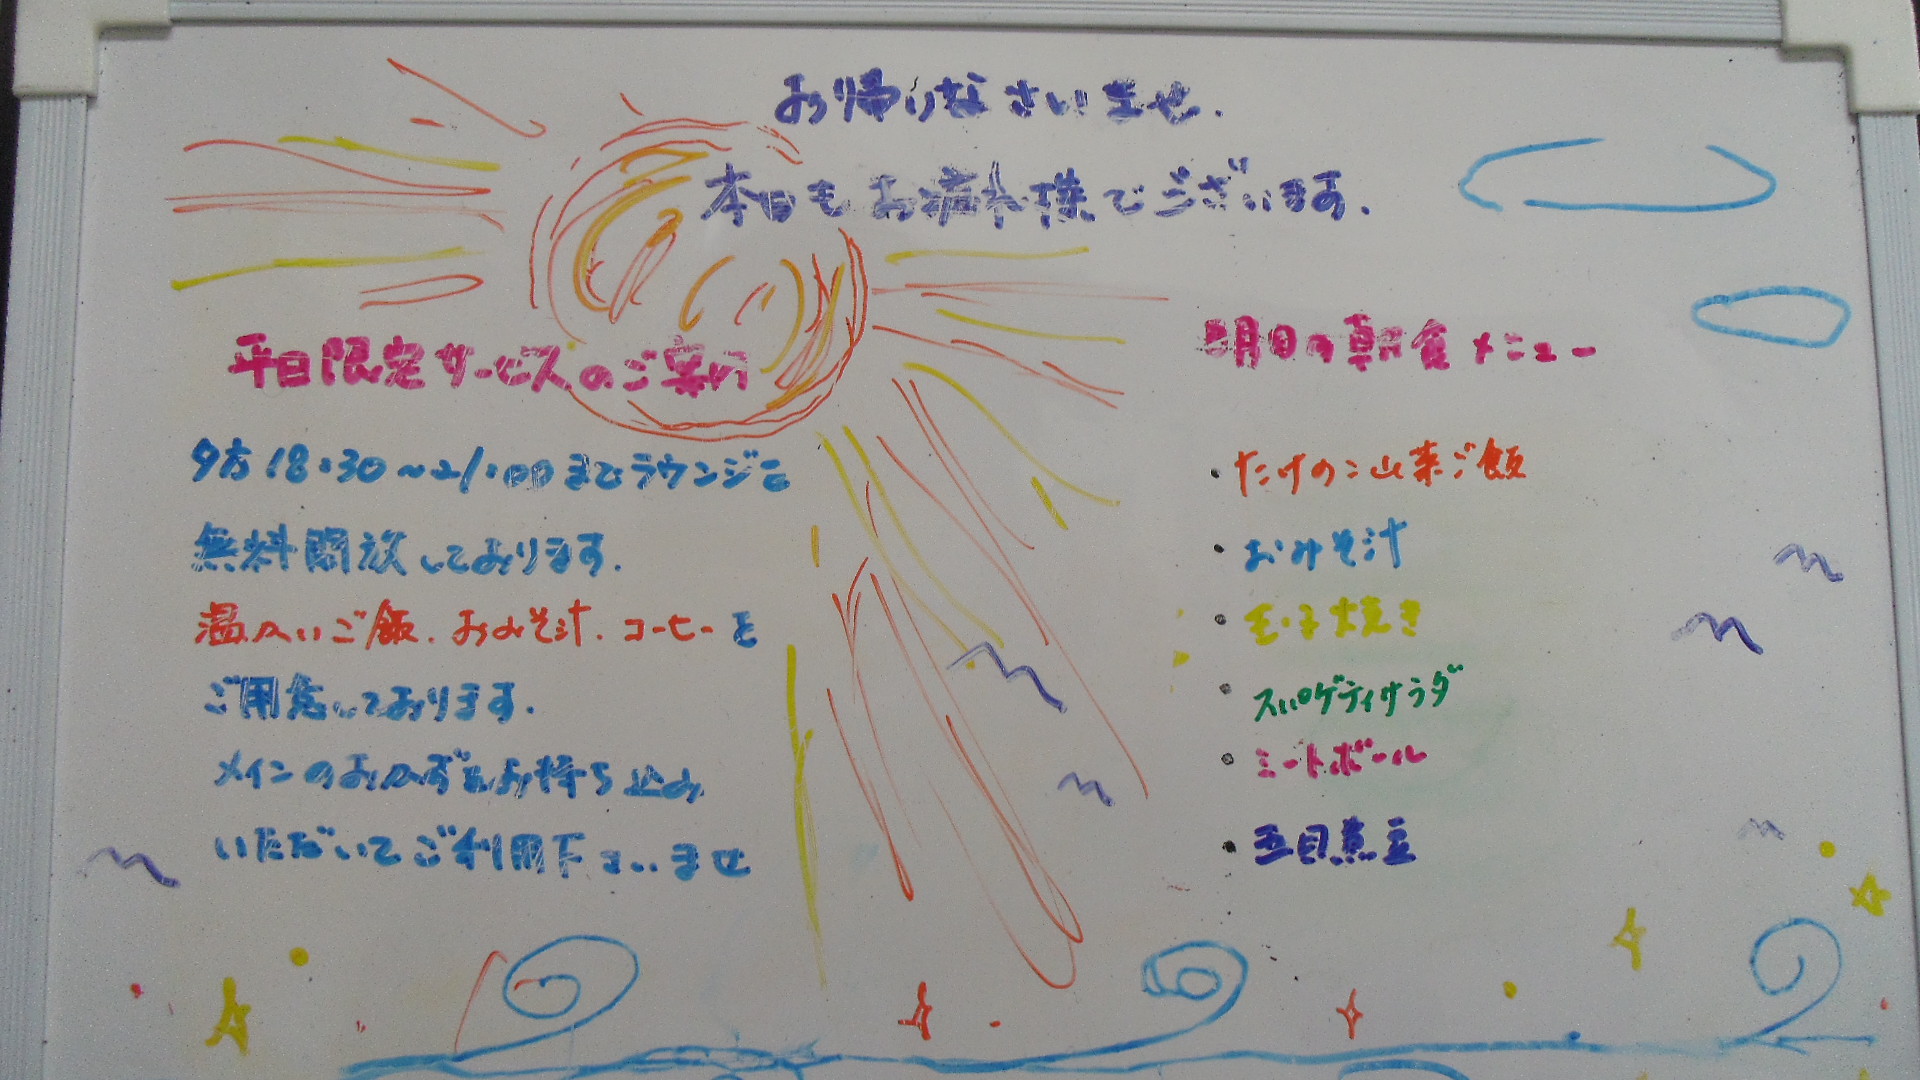 お帰りなさいませ.
本日もお疲れ様でございます.
平日限定サービスのご案内
夕方18:30～21:00までラウンジを
無料開放しております.
温かいご飯.おみそ汁.コーヒーを
ご用意しております.
メインのおかずをお持ち込み
いただいてご利用下さいませ
明日の朝食メニュー
・たけのこ山菜ご飯
・おみそ汁
・玉子焼き
・スパゲティサラダ
・ミートボール
・五目煮豆